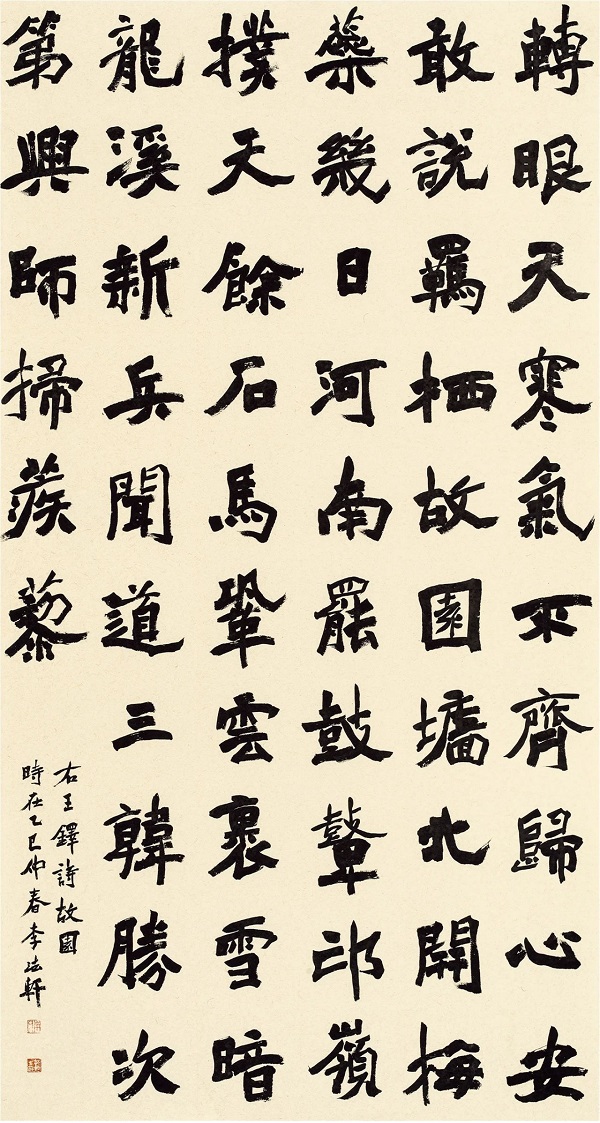 轉眼天寒氣不齊歸心安
敢說羈栖故園墻北開梅
蘂幾日河南罷鼓鼙邙嶺
撲天餘石馬鞏雲裹雪暗
龍溪新兵聞道三韓勝次
第興師掃蒺藜
右王鐸詩故國
時在乙巳仲春李法軒